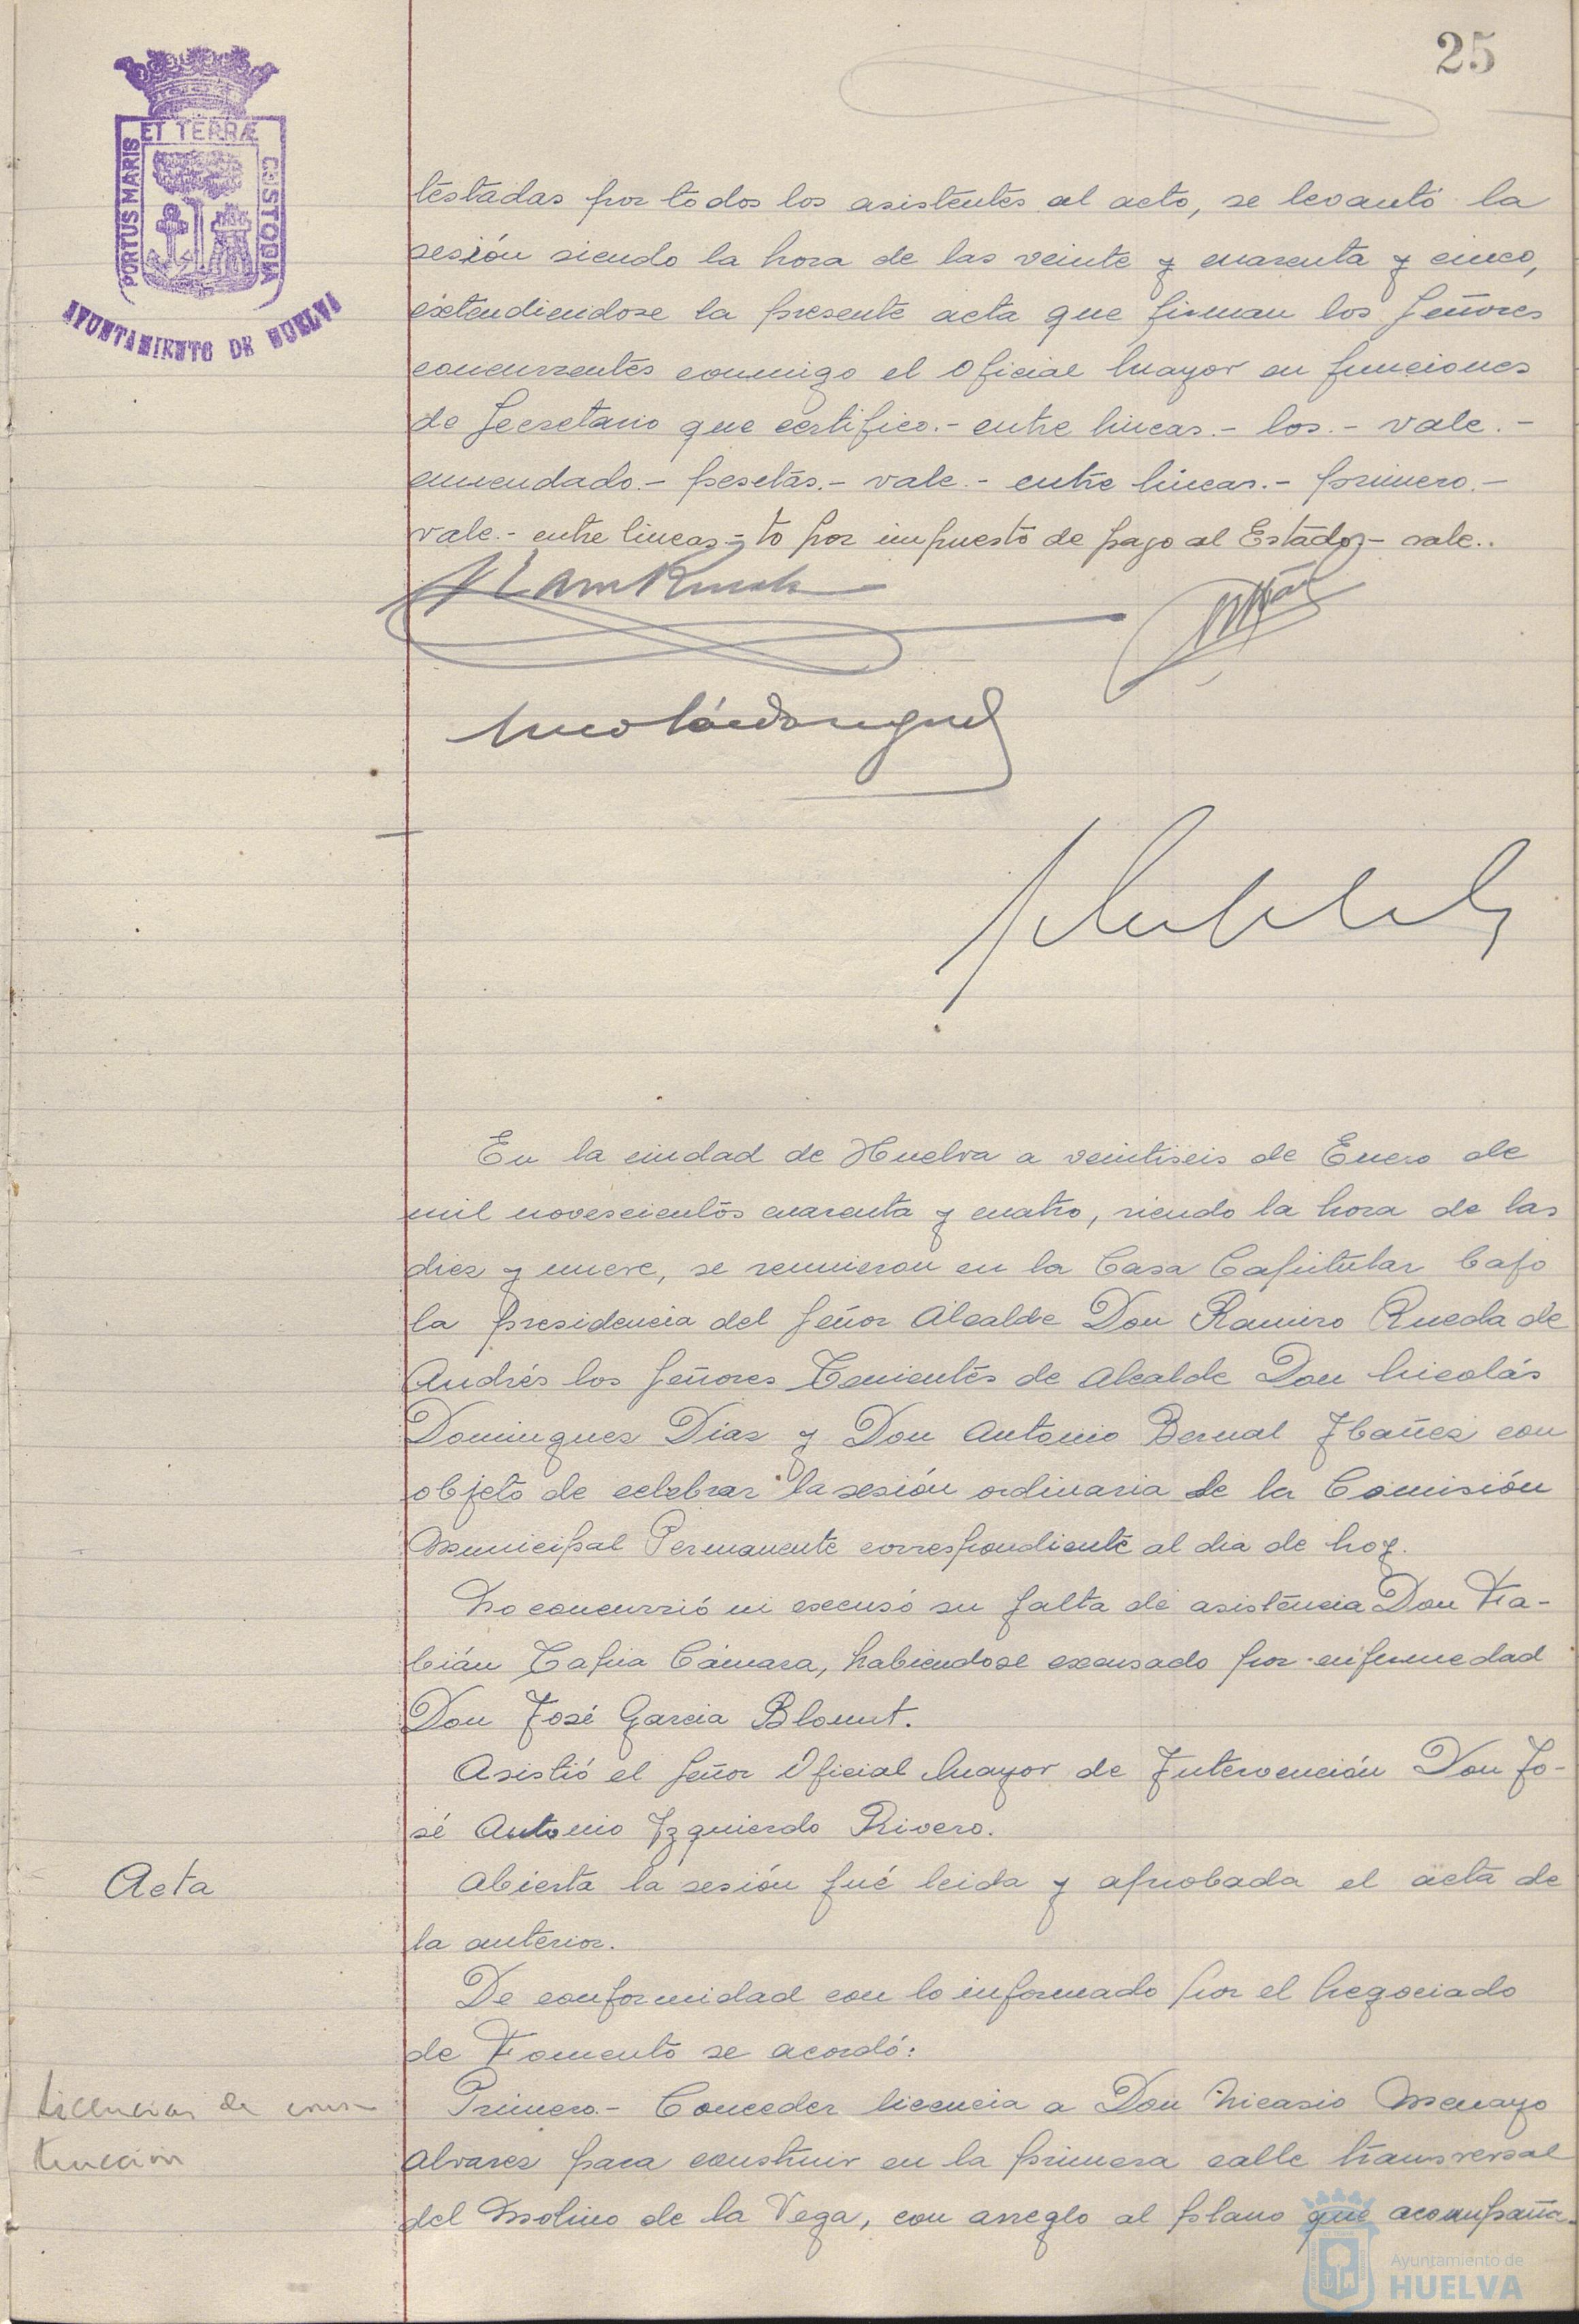 25
PORTUS MARIS ET TERRÆ CUSTODIA
AYUNTAMIENTO DE HUELVA
testadas por todos los asistentes al acto, se levantó la
sesión siendo la hora de las veinte y cuarenta y cinco,
extendiendose la presente acta que firman los Señores
concurrentes conmigo el Oficial Mayor en funciones
de Secretario que certifico.- entre lineas.- los.- vale.-
enmendado.- pesetas.- vale.- entre lineas.- primero.-
vale.- entre lineas.- to por impuesto de pago al Estado,- vale..
En la ciudad de Huelva a veintiseis de Enero de
mil novescientos cuarenta y cuatro, siendo la hora de las
diez y nueve, se reunieron en la Casa Capitular bajo
la presidencia del Señor Alcalde Don Ramiro Rueda de
Andrés los Señores Tenientes de Alcalde Don Nicolás
Dominguez Diaz y Don Antonio Bernal Ibañez con
objeto de celebrar la sesión ordinaria de la Comisión
Municipal Permanente correspondiente al dia de hoy.
No concurrió ni excusó su falta de asistencia Don Fa-
bián Tapia Cámara, habiendose excusado por enfermedad
Don José Garcia Blount.
Asistió el Señor Oficial Mayor de Intervención Don Jo-
sé Antonio Izquierdo Rivero.
Acta
Abierta la sesión fué leida y aprobada el acta de
la anterior.
De conformidad con lo informado por el Negociado
de Fomento se acordó:
Licencias de cons-
trucción
Primero.- Conceder licencia a Don Nicasio Menayo
Alvarez para construir en la primera calle transversal
del Molino de la Vega, con arreglo al plano que acompaña.
Ayuntamiento de
HUELVA